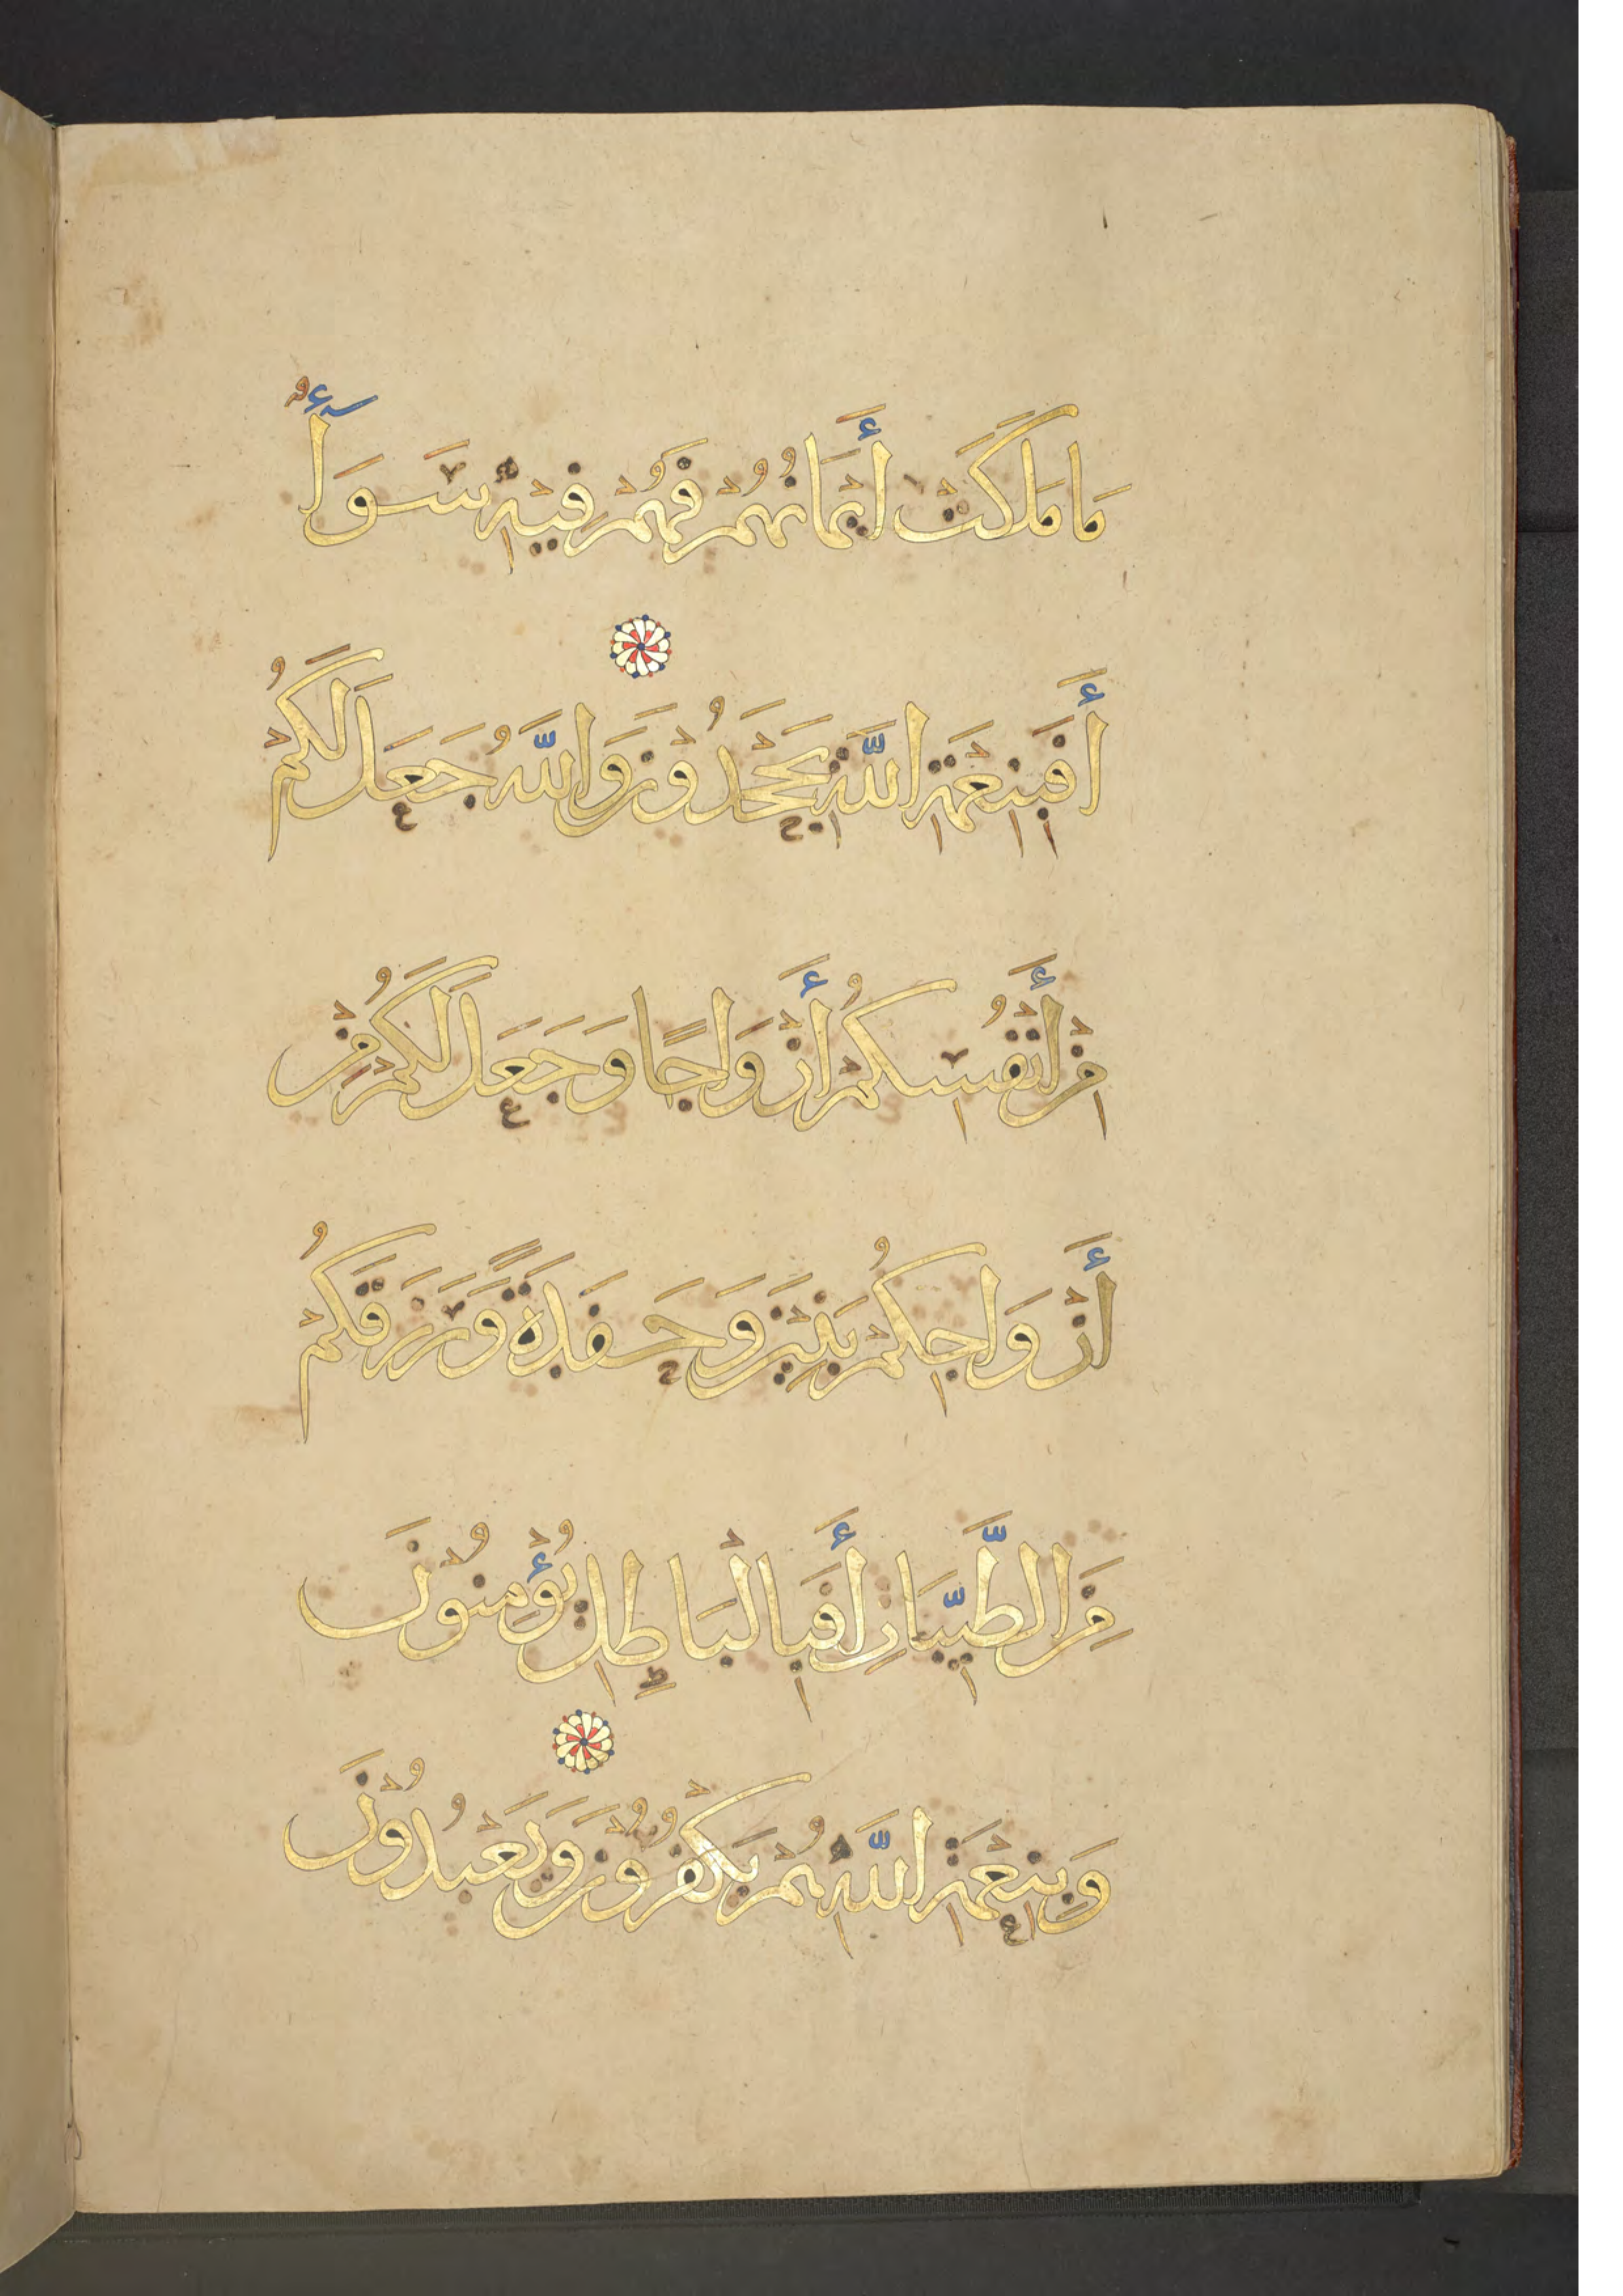 مَا مَلَكَتْ أَيْمَانُهُمْ فَهُمْ فِيهِ سَوَآءٌ
أَفَبِنِعْمَةِ اللَّهِ يَجْحَدُونَ وَاللَّهُ جَعَلَ لَكُمْ
مِنْ أَنْفُسِكُمْ أَزْوَاجًا وَجَعَلَ لَكُمْ مِنْ
أَزْوَاجِكُمْ بَنِينَ وَحَفَدَةً وَرَزَقَكُمْ
مِنَ الطَّيِّبَاتِ أَفَبِالْبَاطِلِ يُؤْمِنُونَ
وَبِنِعْمَةِ اللَّهِ هُمْ يَكْفُرُونَ وَيَعْبُدُونَ